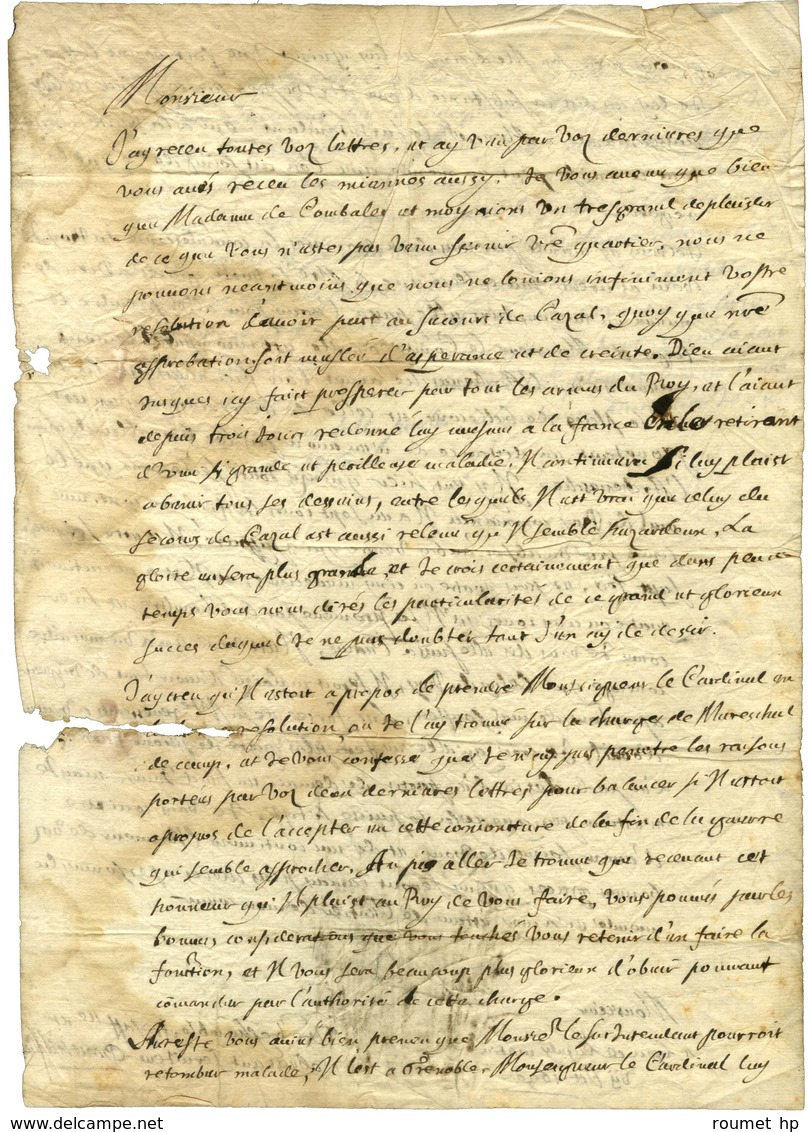 Monsieur
J'ay receu toutes voz lettres, et ay veu par voz dernieres que
vous avés receu les miennes aussy. Je vous aveue que bien
que Madame de Combalet et moy aions un tresgrand deplaisir
de ce que vous n'estes pas venu servir vre quartier, nous ne
pouvons neantmoins que nous ne louions infiniment vostre
resolution d'avoir part au secours de Cazal, quoy que nre
approbation soit meslée d'esperance et de creinte. Dieu aiant
jusques icy faict prosperer par tout les armes du Roy, et l'aiant
depuis trois jours redonné luy mesme a la france en le retirant
d'une si grande et perilleuse maladie, Il continuera s'il luy plaist
a benir tous ses desseins, entre lesquels Il est vrai que celuy du
secours de Cazal est aussi relevé qu'Il semble hazardeux. La
gloire en sera plus grande, et Je crois certainement que dans peu de
temps vous nous dirés les particularités de ce grand et glorieux
succes duquel Je ne puis doubter tant J'en ay de desir.
J'ay creu qu'Il estoit a propos de prendre Monseigneur le Cardinal en
resolution ou Je l'ay trouvé sur la charge de Mareschal
de camp, et Je vous confesse que Je n'ay pas les raisons
portées par voz dernieres lettres pour balancer si Il estoit
a propos de l'accepter en cette conjoncture de la fin de la guerre
qui semble approcher. Au pis aller Je trouve que recevant cet
honneur qu'Il plaist au Roy de vous faire, vous pouvés par les
bonnes considerations que vous touchés vous retenir d'en faire la
fonction, et Il vous sera beaucoup plus glorieux d'obeir pouvant
comander par l'authorité de cette charge.
Au reste vous aviés bien preveu que Monsier le surIntendant pourroit
retomber malade, Il l'est a Grenoble. Monseigneur le Cardinal luy
roumet hp